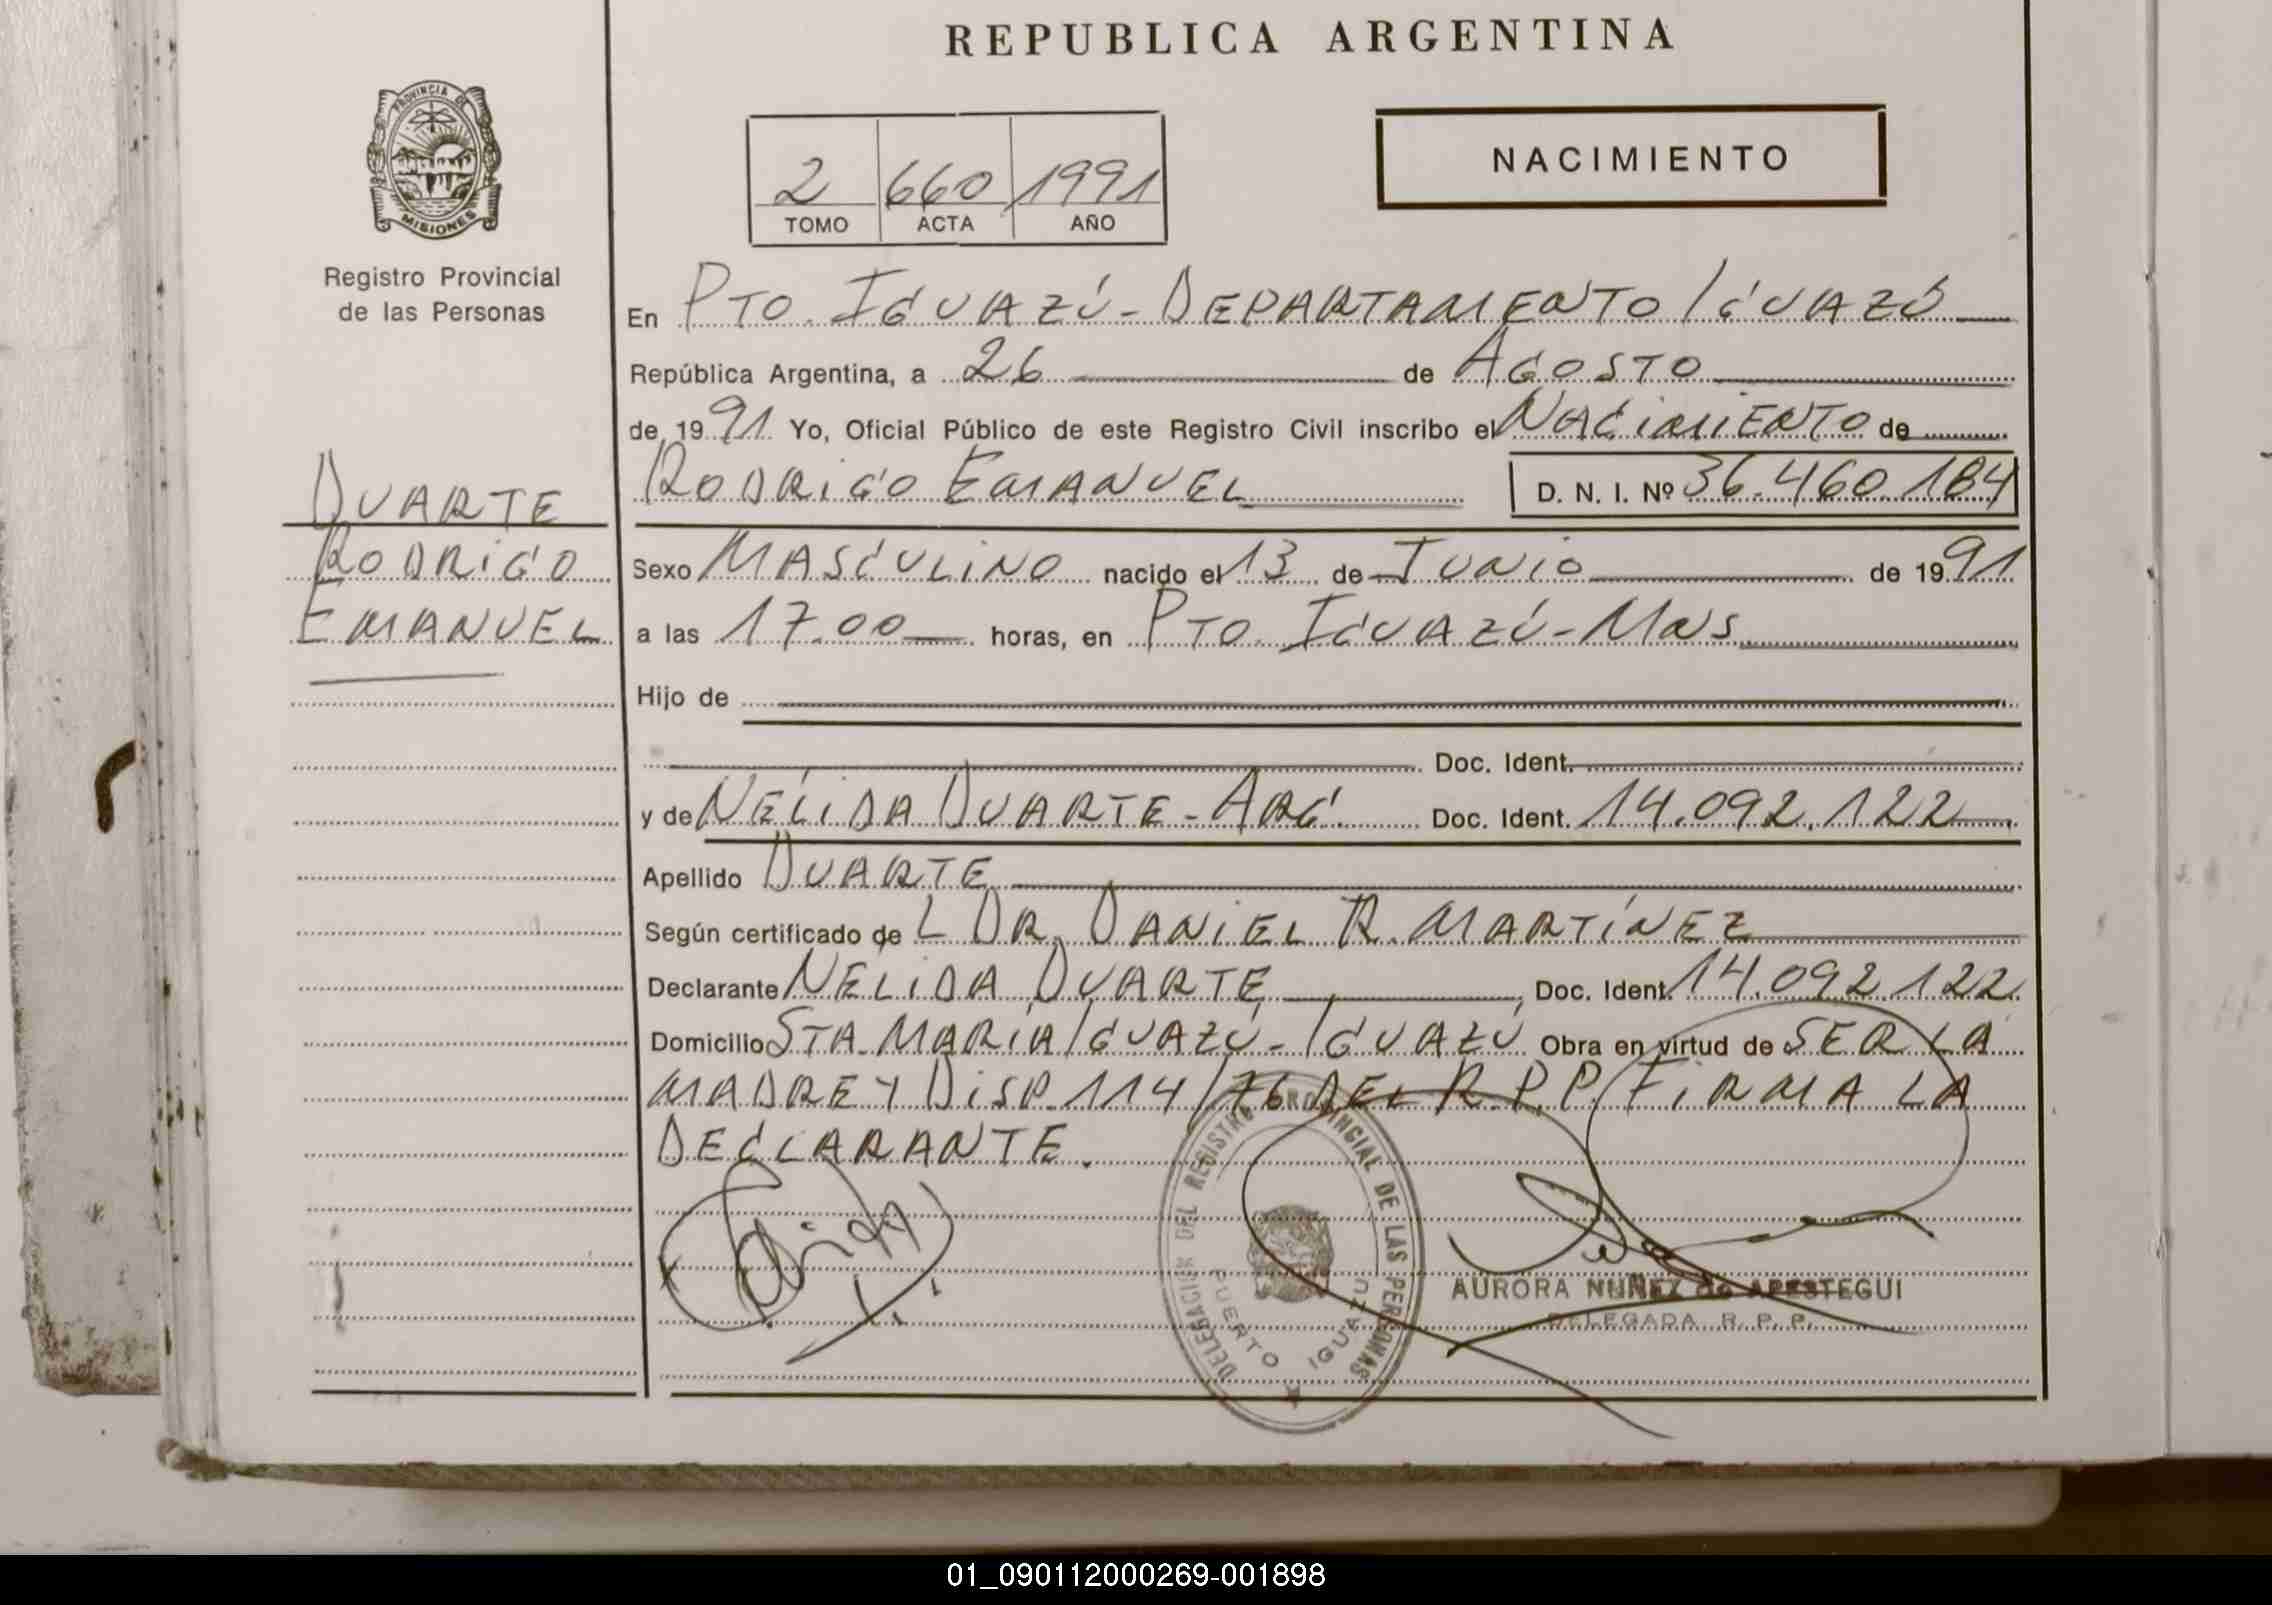 REPUBLICA ARGENTINA
PROVINCIA DE
MISIONES
Registro Provincial
de las Personas
2 660 1991
TOMO ACTA AÑO
NACIMIENTO
En PTO. IGUAZÚ - DEPARTAMENTO IGUAZÚ
República Argentina, a 26 de AGOSTO
de 1991 Yo, Oficial Público de este Registro Civil inscribo el NACIMIENTO de
RODRIGO EMANUEL D. N. I. Nº 36.460.184
DUARTE
RODRIGO
EMANUEL
Sexo MASCULINO nacido el 13 de JUNIO de 1991
a las 17.00 horas, en PTO. IGUAZÚ - MNS
Hijo de
Doc. Ident.
y de NÉLIDA DUARTE - ARG. Doc. Ident. 14.092.122
Apellido DUARTE
Según certificado de L DR. DANIEL R. MARTÍNEZ
Declarante NELIDA DUARTE, Doc. Ident. 14.092.122
Domicilio STA. MARÍA IGUAZÚ - IGUAZÚ Obra en virtud de SER LA
MADRE Y DISP. 114/76 DEL R.P.P. FIRMA LA
DECLARANTE.
DELEGACION DEL REGISTRO PROVINCIAL DE LAS PERSONAS
PUERTO IGUAZU
AURORA NUÑEZ de APESTEGUI
DELEGADA R. P. P.
01_090112000269-001898